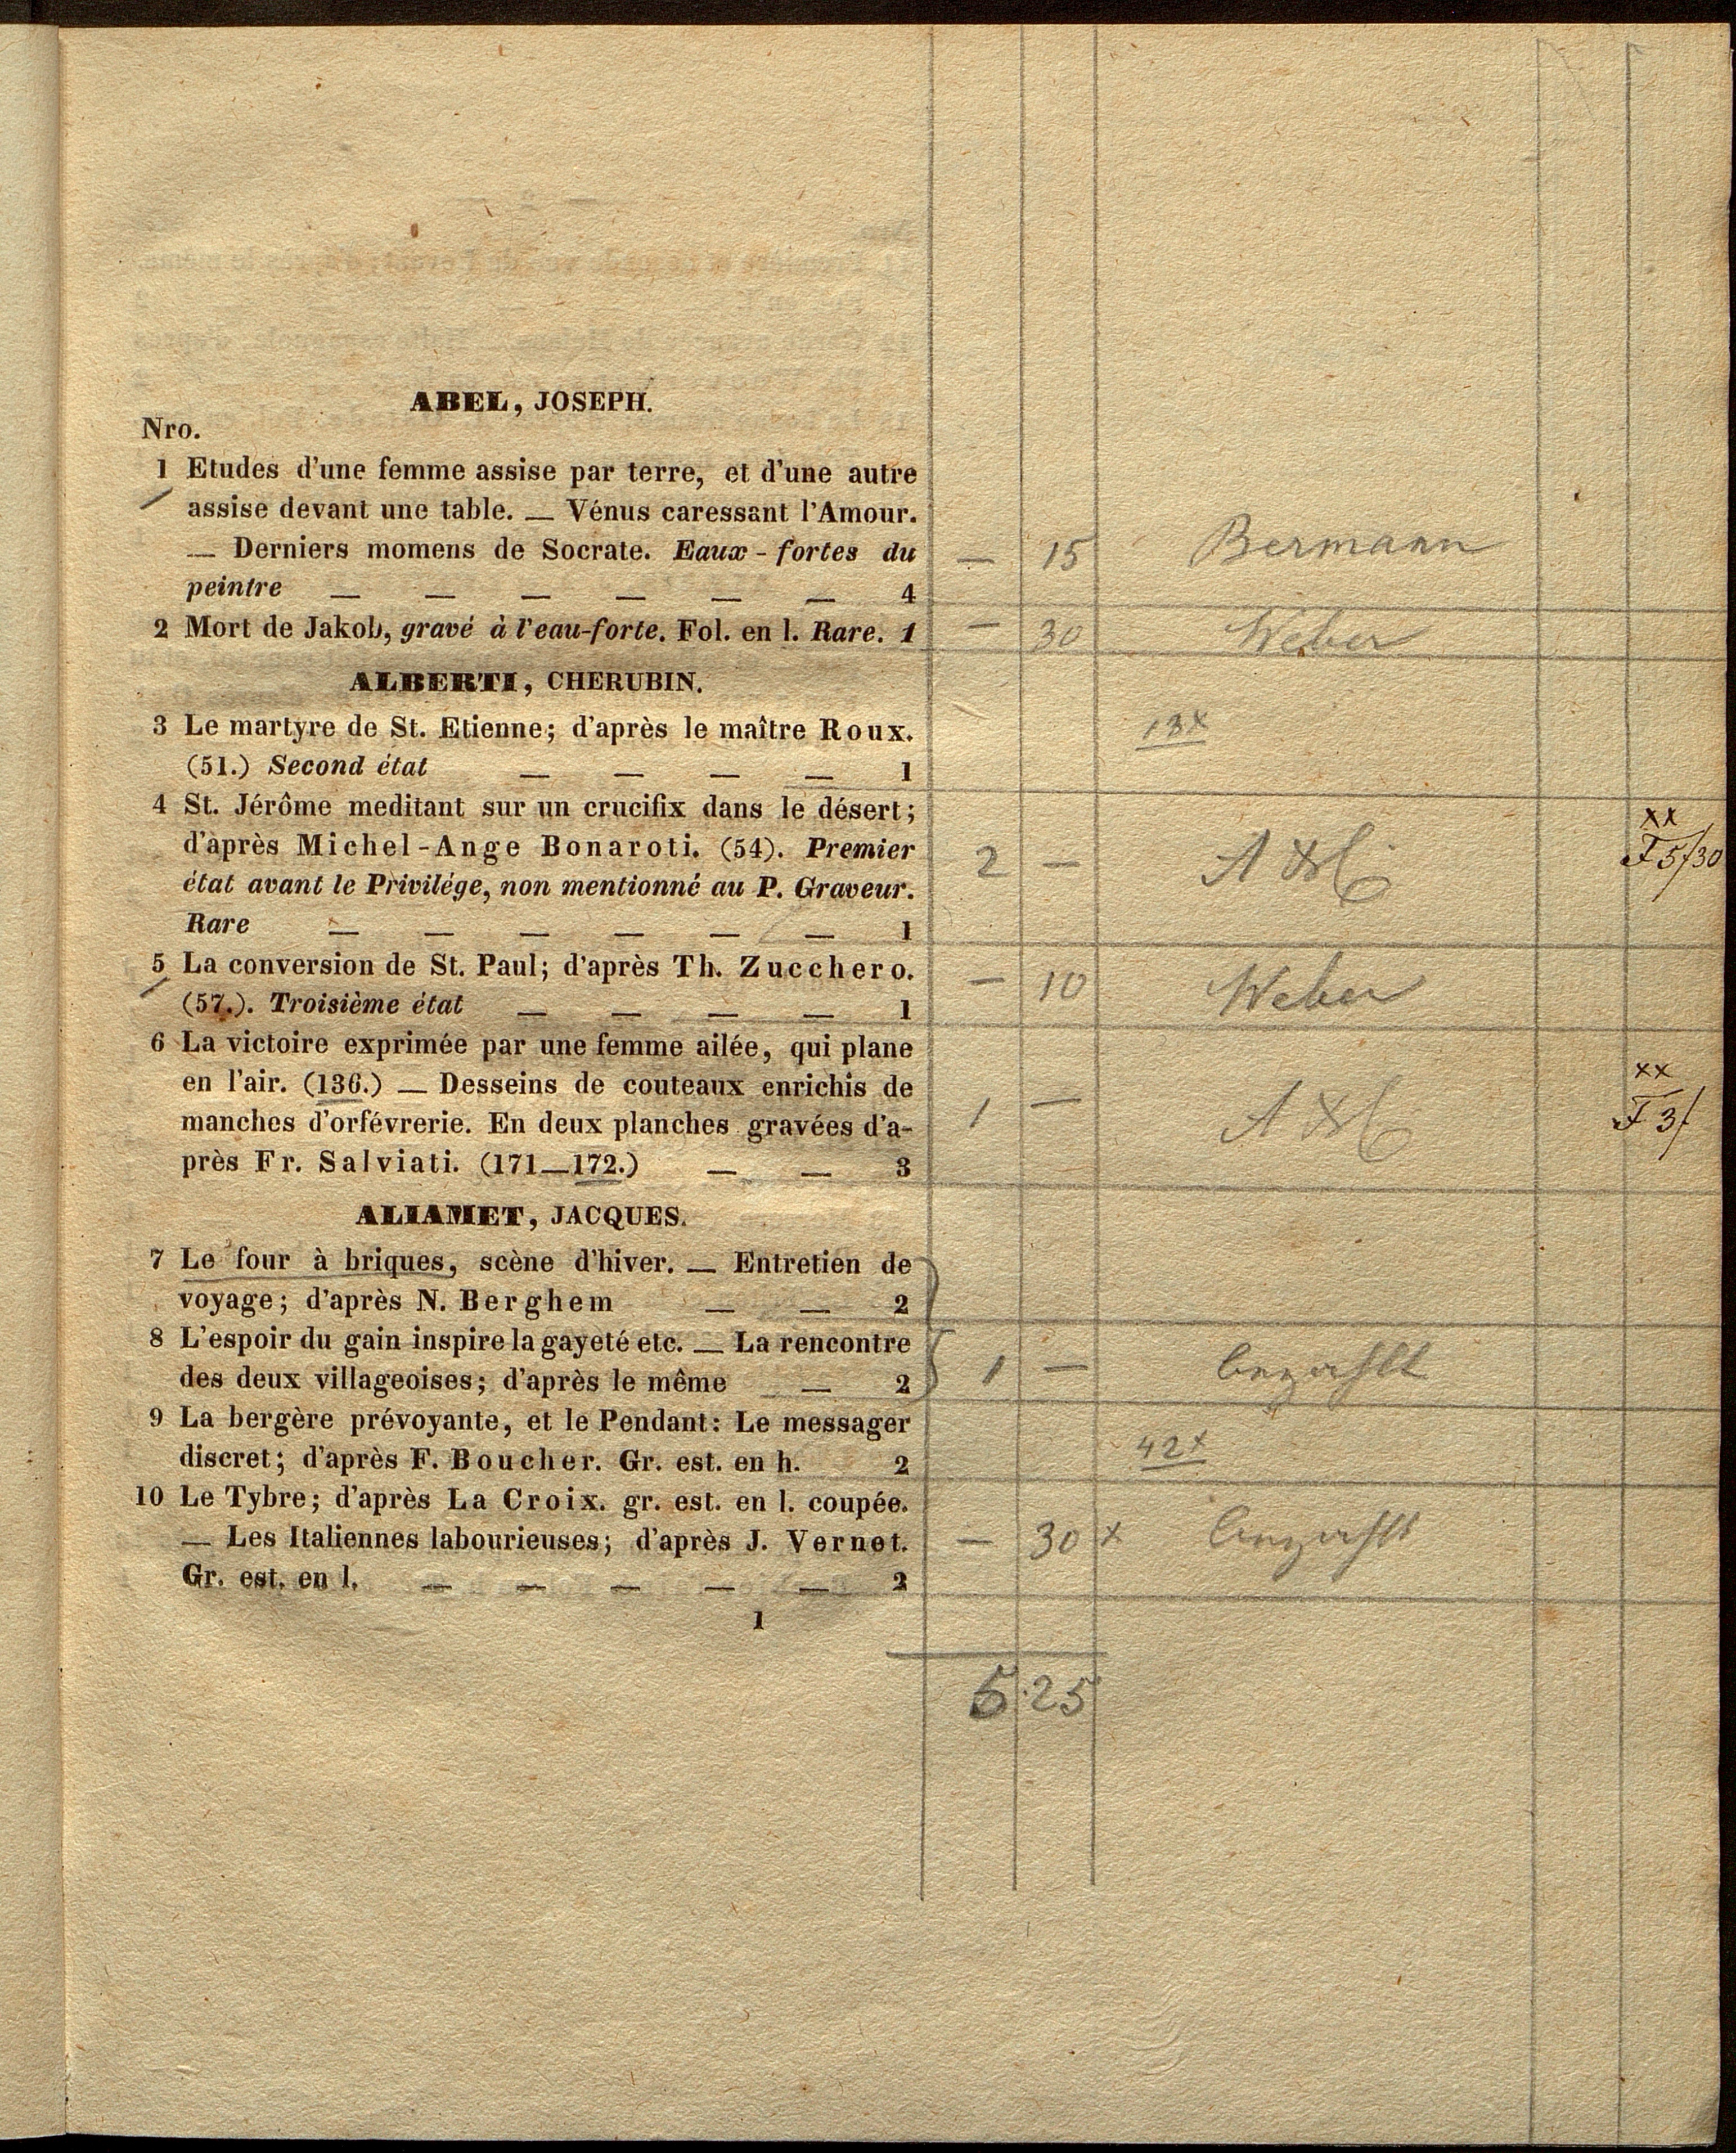 ABEL, JOSEPH.
Nro.
1 Etudes d'une femme assise par terre, et d'une autre
assise devant une table. — Vénus caressant l'Amour.
— Derniers momens de Socrate. Eaux-fortes du — 15 Bermann
peintre — — — — — — 4
2 Mort de Jakob, gravé à l'eau-forte. Fol. en l. Rare. 1 — 30 Weber
ALBERTI, CHERUBIN.
3 Le martyre de St. Etienne; d'après le maître Roux. 13x
(51.) Second état — — — — 1
4 St. Jérôme meditant sur un crucifix dans le désert; xx
d'après Michel-Ange Bonaroti. (54). Premier 2 — 5/30
état avant le Privilége, non mentionné au P. Graveur.
Rare — — — — — — 1
5 La conversion de St. Paul; d'après Th. Zucchero. — 10 Weber
(57.). Troisième état — — — — 1
6 La victoire exprimée par une femme ailée, qui plane
en l'air. (136.) — Desseins de couteaux enrichis de xx
manches d'orfévrerie. En deux planches gravées d'a- 1 — 3/
près Fr. Salviati. (171—172.) — — 3
ALIAMET, JACQUES.
7 Le four à briques, scène d'hiver. — Entretien de
voyage; d'après N. Berghem — — 2
8 L'espoir du gain inspire la gayeté etc. — La rencontre
des deux villageoises; d'après le même — 2 1 — bezahlt
9 La bergère prévoyante, et le Pendant: Le messager
discret; d'après F. Boucher. Gr. est. en h. 2 42x
10 Le Tybre; d'après La Croix. gr. est. en l. coupée.
— Les Italiennes labourieuses; d'après J. Vernet. — 30 x bezahlt
Gr. est. en l. — — — — — 2
1
5.25